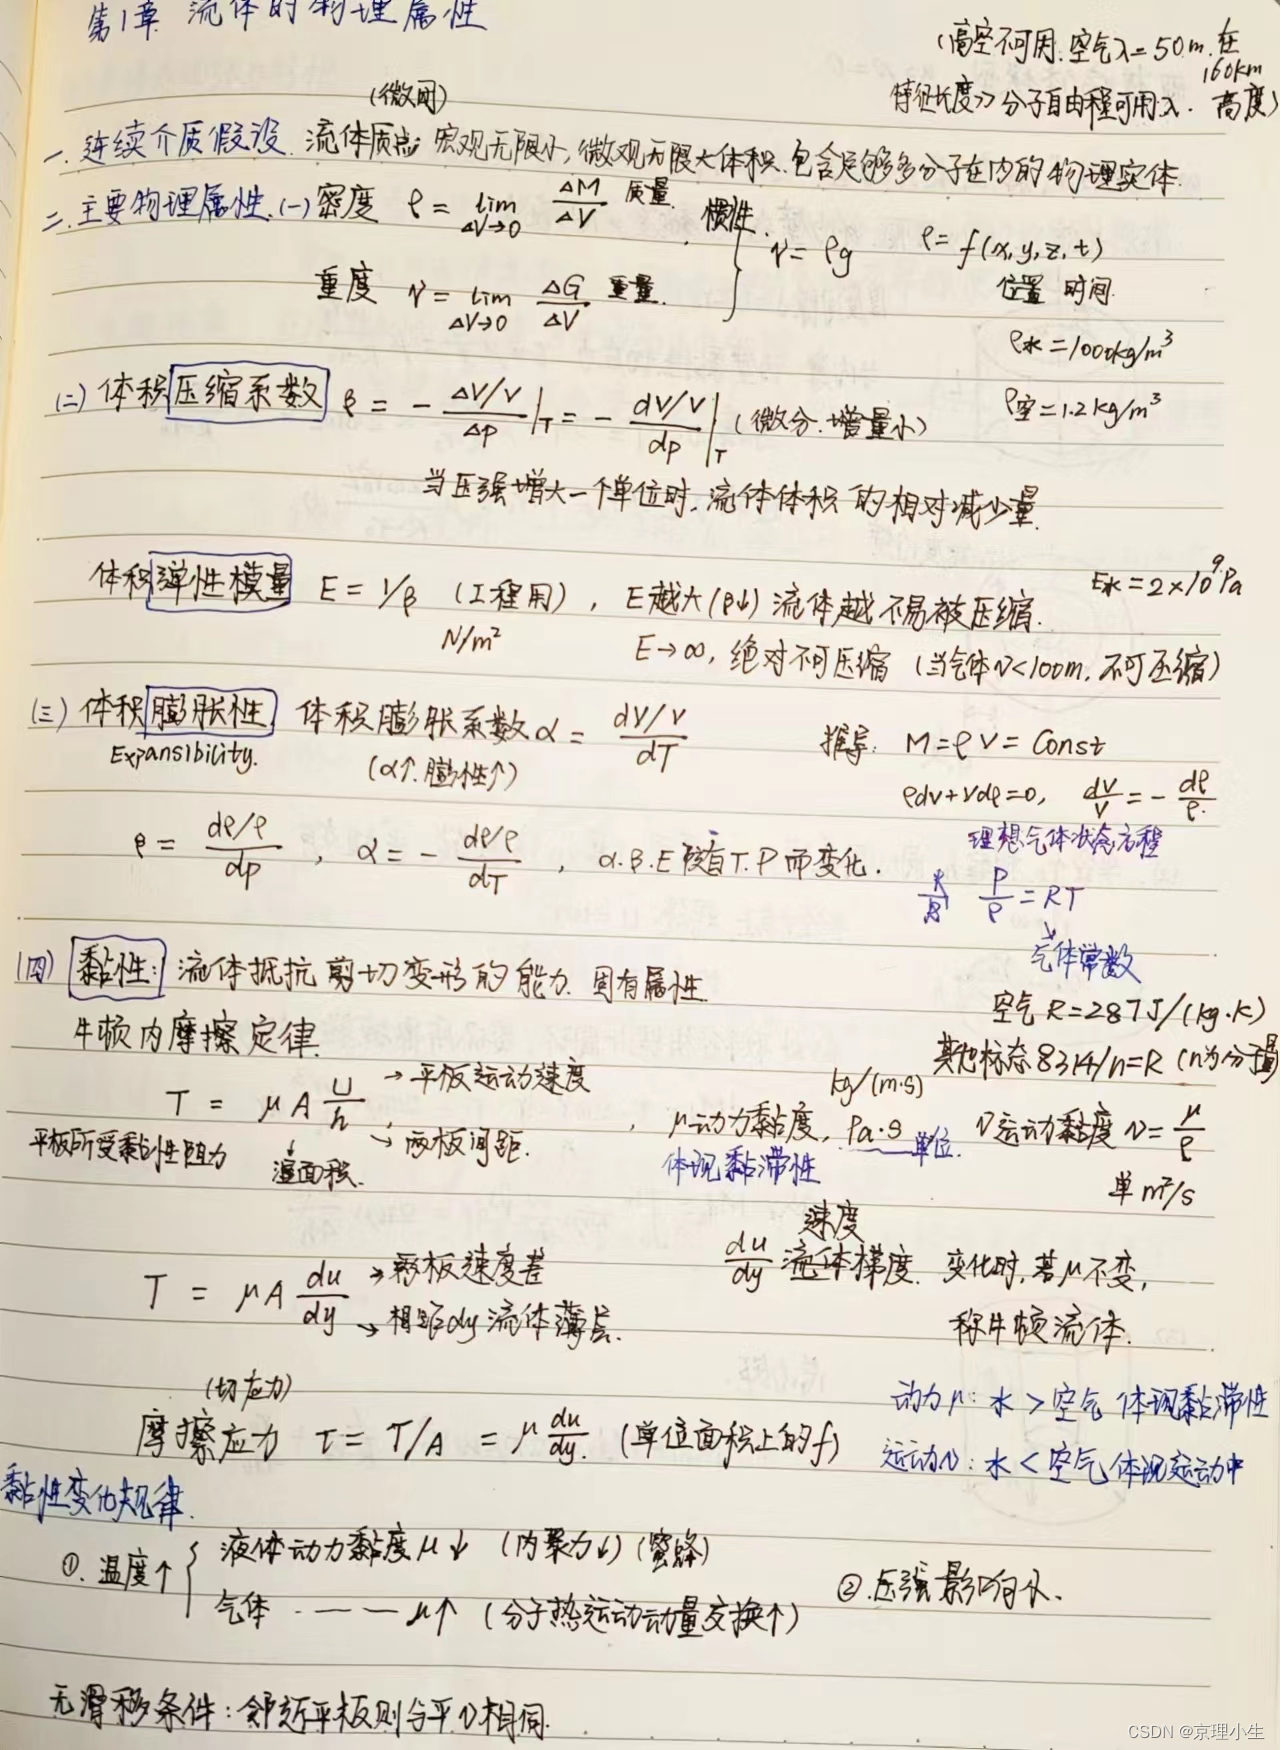 第1章 流体的物理属性
(高空不可用.空气λ=50m.在160km高度)
特征长度>>分子自由程可用λ.
(微团)
一.连续介质假设.流体质点:宏观无限小,微观无限大体积.包含足够多分子在内的物理实体.
二.主要物理属性.(一)密度 ρ = lim ΔV→0 ΔM/ΔV 质量. 惯性.
γ = ρg ρ = f(x,y,z,t)
位置 时间.
重度 γ = lim ΔV→0 ΔG/ΔV 重量.
ρ水=1000kg/m³
(二)体积压缩系数 β = - ΔV/V / Δp |T = - dV/V / dp |T (微分.增量小)
ρ空=1.2kg/m³
当压强增大一个单位时,流体体积的相对减少量.
体积弹性模量 E = 1/β (工程用), E越大(β↓)流体越不易被压缩.
E水=2×10⁹Pa
N/m² E→∞, 绝对不可压缩 (当气体v<100m,不可压缩)
(三)体积膨胀性 体积膨胀系数α = dV/V / dT 推导: M=ρV=Const
Expansibility. (α↑.膨胀性↑)
ρdv+Vdρ=0, dV/V = - dρ/ρ.
β = dρ/ρ / dp , α = - dρ/ρ / dT , α.β.E 随着T.P而变化.
理想气体状态方程
P/ρ = RT
气体常数
(四)黏性: 流体抵抗剪切变形的能力.固有属性.
空气R=287J/(kg·K)
牛顿内摩擦定律.
其他标态8314/n=R (n为分子量)
T = μA U/h →平板运动速度
→两板间距.
平板所受黏性阻力 湿面积.
μ动力黏度, kg/(m·s)
Pa·s 单位. ν运动黏度 ν=μ/ρ
体现黏滞性
单m²/s
T = μA du/dy →板速度差
→相距dy流体薄层.
速度
du/dy 流体梯度. 变化时,若μ不变,
称牛顿流体.
(切应力)
摩擦应力 τ = T/A = μ du/dy. (单位面积上的f)
动力μ: 水 > 空气 体现黏滞性
运动ν: 水 < 空气 体现运动中
黏性变化规律.
①.温度↑ { 液体动力黏度μ↓ (内聚力↓)(蜂)
气体 - — — μ↑ (分子热运动动量交换↑)
②.压强影响小.
无滑移条件: 邻近平板则与平ν相同.
CSDN @京理小生